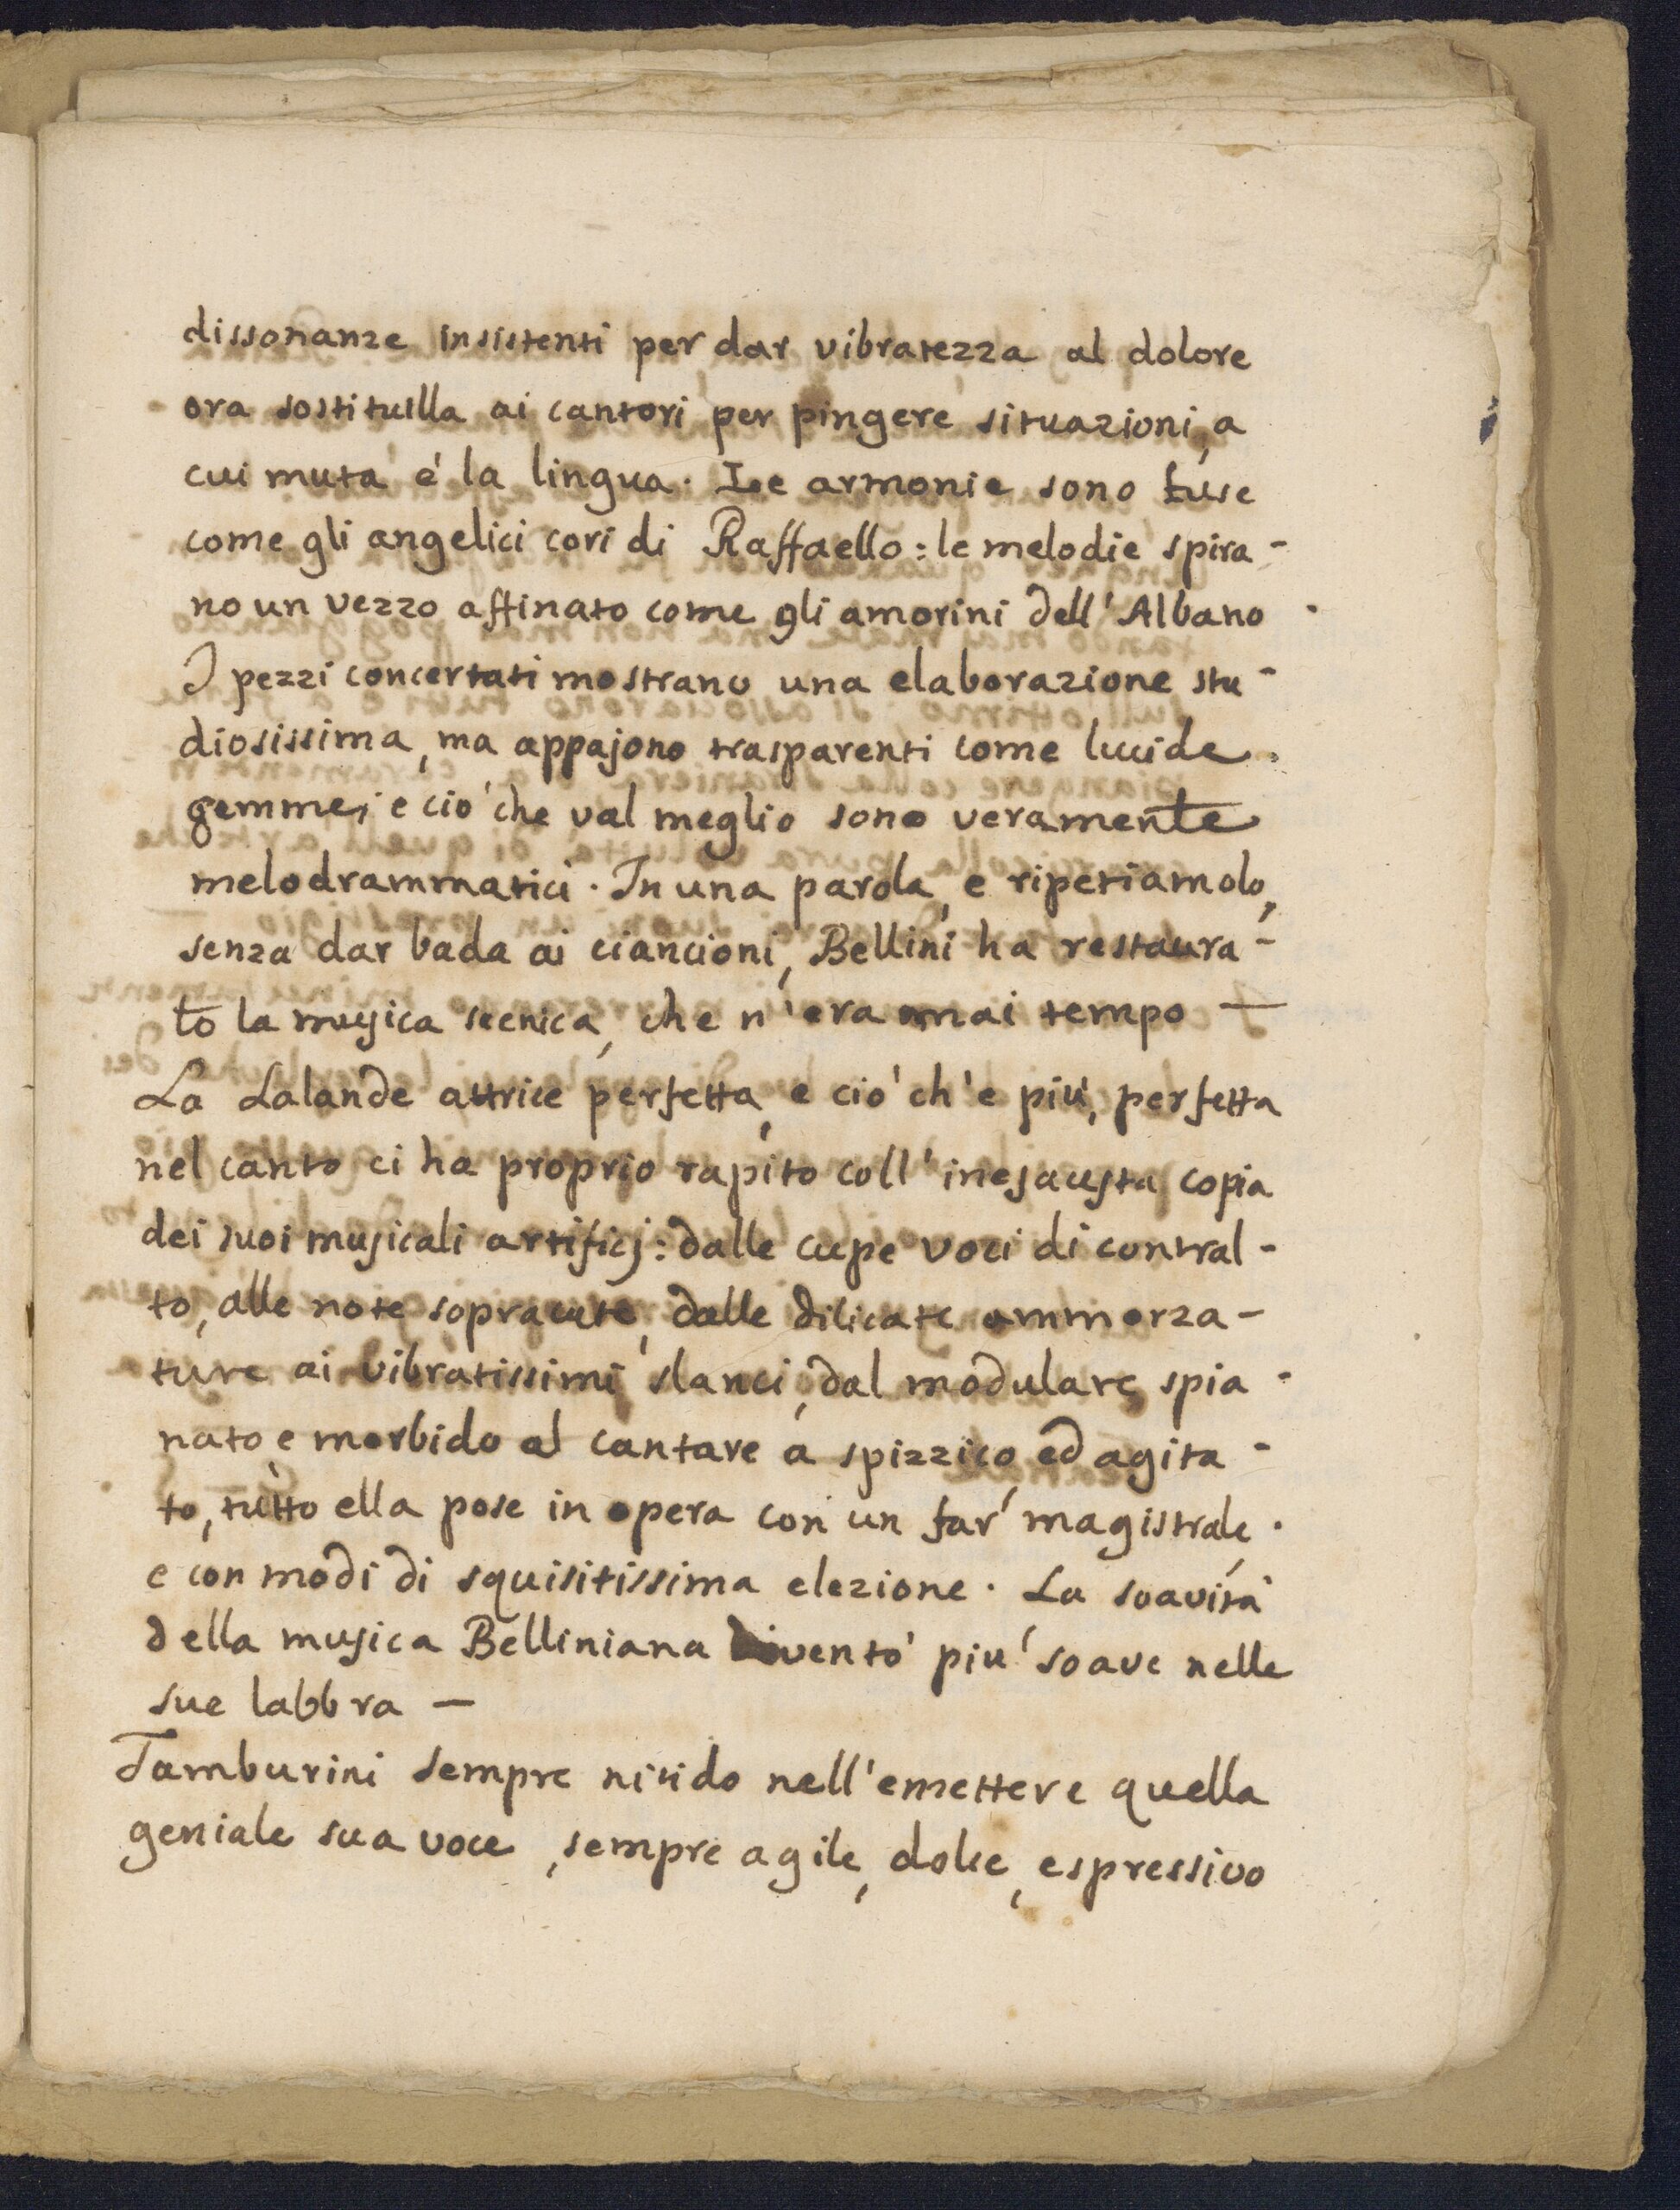 dissonanze insistenti per dar vibratezza al dolore
ora sostituilla ai cantori per pingere situazioni, a
cui muta è la lingua. Le armonie sono fuse
come gli angelici cori di Raffaello: le melodie spira-
no un vezzo affinato come gli amorini dell'Albano.
I pezzi concertati mostrano una elaborazione stu-
diosissima, ma appajono trasparenti come lucide
gemme; e ciò che val meglio sono veramente
melodrammatici. In una parola, e ripetiamolo,
senza dar bada ai ciancioni, Bellini ha restaura-
to la musica scenica, che n'era omai tempo —
La Lalande attrice perfetta, e ciò ch'è più, perfetta
nel canto ci ha proprio rapito coll'inesausta copia
dei suoi musicali artificj: dalle cupe voci di contral-
to, alle note sopracute, dalle dilicate ammorza-
ture ai vibratissimi slanci, dal modulare spia-
nato e morbido al cantare a spizzico, ed agita-
to, tutto ella pose in opera con un far magistrale,
e con modi di squisitissima elezione. La soavità
della musica Belliniana diventò più soave nelle
sue labbra —
Tamburini sempre nitido nell'emettere quella
geniale sua voce, sempre agile, dolce, espressivo